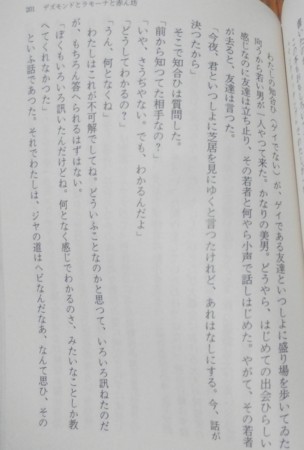 201 デズモンドとテキーラと赤ん坊
わたしの知合ひ(ゲイでない)が、ゲイである友達といつしよに盛り場を歩いてゐた
向うから若い男が一人やつて来た。かなりの美男。どうやら、はじめての出会ひらしい
感じなのに友達は立ち止り、その若者と何やら小声で話しはじめた。やがて、その若者
が去ると、友達は言つた。
「今夜、君といつしよに芝居を見にゆくと言つたけれど、あれはなしになる。今、話が
決つたから」
そこで知合ひは質問した。
「前から知つてた相手なのか?」
「いや、さうぢやない。でも、わかるんだよ」
「どうしてわかるの?」
「うん、何となくね」
わたしはこれが不可解でしてね。どういふことなのかと思つて、いろいろ訊ねたのだ
が、もちろん答へられるはずはない。
「ぼくもいろいろ訊いたんだけどね。何となく感じでわかるのさ、みたいなことしか教
へてくれなかつた」
といふ話であつた。それでわたしは、ジャの道はヘビなんだなあ、なんて思ひ、その